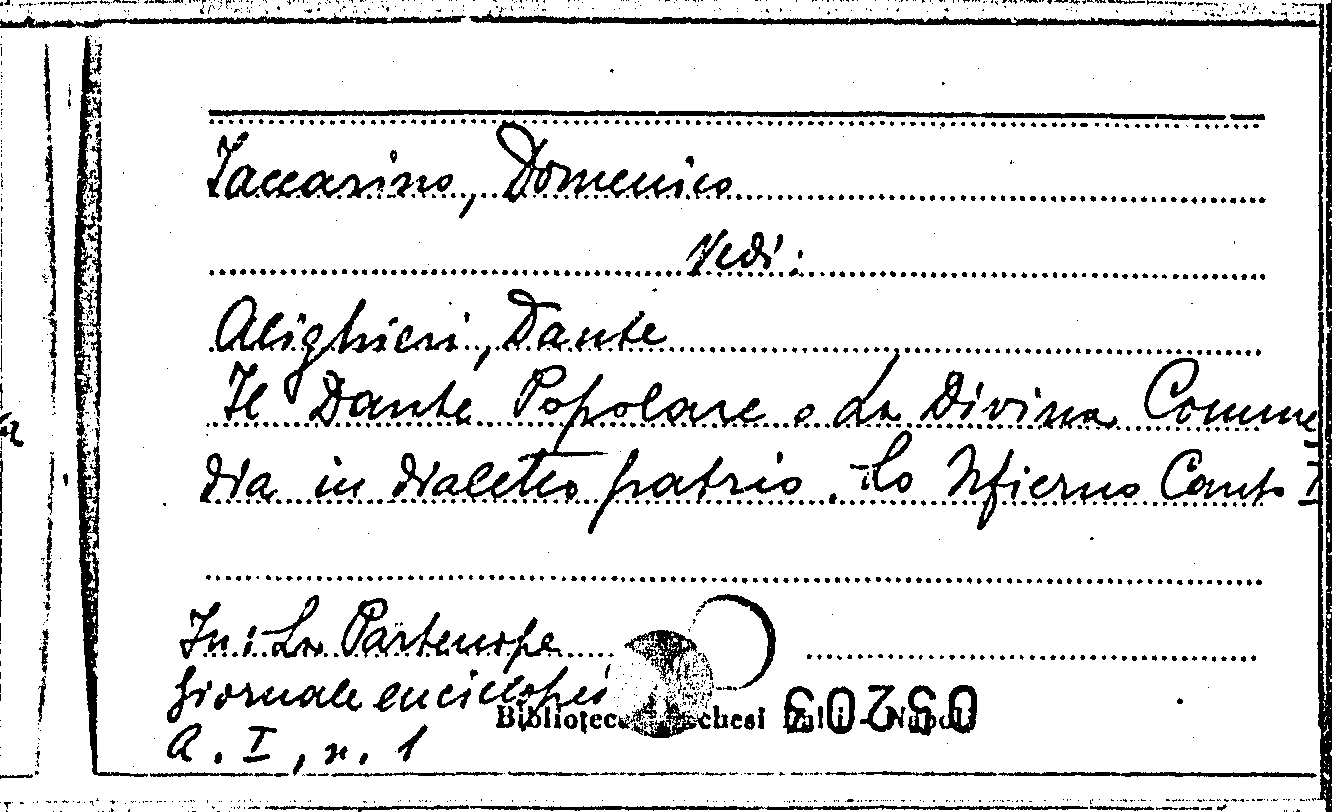 Jaccarino, Domenico
Vedi:
Alighieri, Dante
Il Dante Popolare o La Divina Comme
dia in dialetto patrio. Lo Nfierno Canto I
In: La Partenope
giornale enciclopei
A. I, n. 1